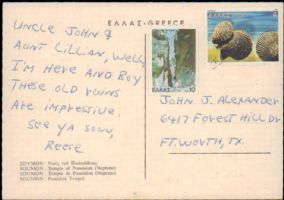 ΕΛΛΑΣ-GREECE
UNCLE JOHN &
AUNT LILLIAN, WELL,
I'M HERE AND BOY
THESE OLD RUINS
ARE IMPRESSIVE.
SEE YA SOON,
REESE
ΕΛΛΑΣ
10
JOHN J. ALEXANDER
6417 FOREST HILL DR.
FT. WORTH, TX.
ΣΟΥΝΙΟΝ - Ναός τοῦ Ποσειδῶνος
SOUNION - Temple of Poseidon (Neptune)
SOUNION - Temple de Poseidon (Neptune)
SOUNION - Poseidon Tempel